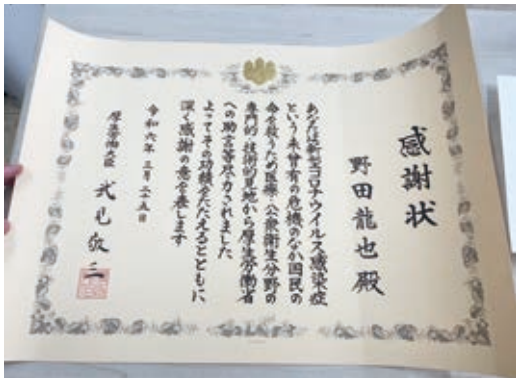 感謝状
野田龍也殿
あなたは新型コロナウイルス感染症
という未曾有の危機のなか国民の
命を救うため医療・公衆衛生分野の
専門的・技術的見地から厚生労働省
への助言等尽力されました
よってその功績をたたえるとともに
深く感謝の意を表します
令和六年三月二十五日
厚生労働大臣 武見敬三